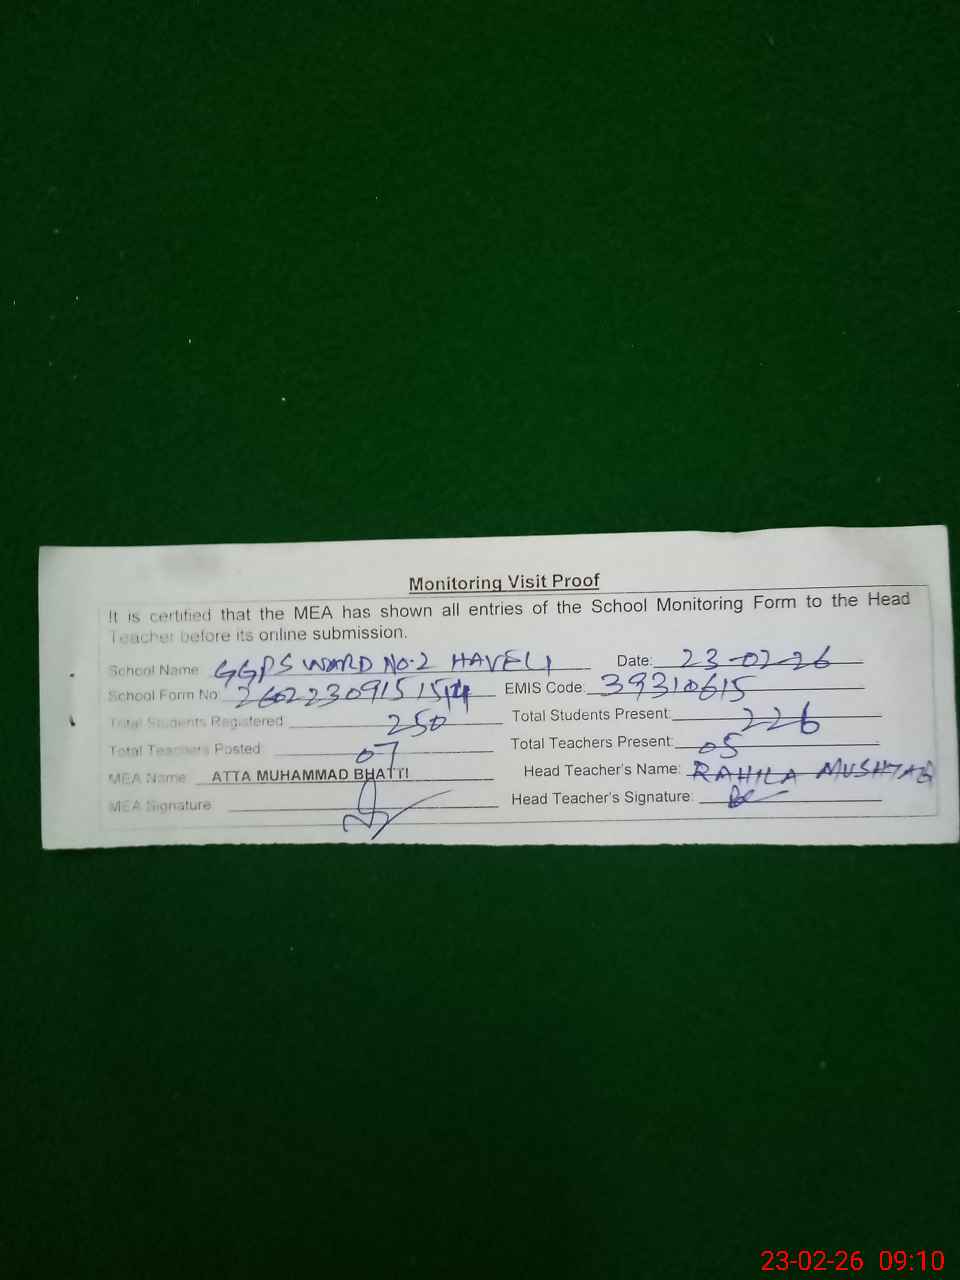 Monitoring Visit Proof
It is certified that the MEA has shown all entries of the School Monitoring Form to the Head
Teacher before its online submission.
School Name: GGPS WARD NO.2 HAVELI Date: 23-02-26
School Form No: EMIS Code: 39310615
Total Students Registered: 250 Total Students Present: 226
Total Teachers Posted: 07 Total Teachers Present: 05
MEA Name: ATTA MUHAMMAD BHATTI Head Teacher's Name: RAHILA MUSHTAQ
MEA Signature: Head Teacher's Signature:
23-02-26 09:10